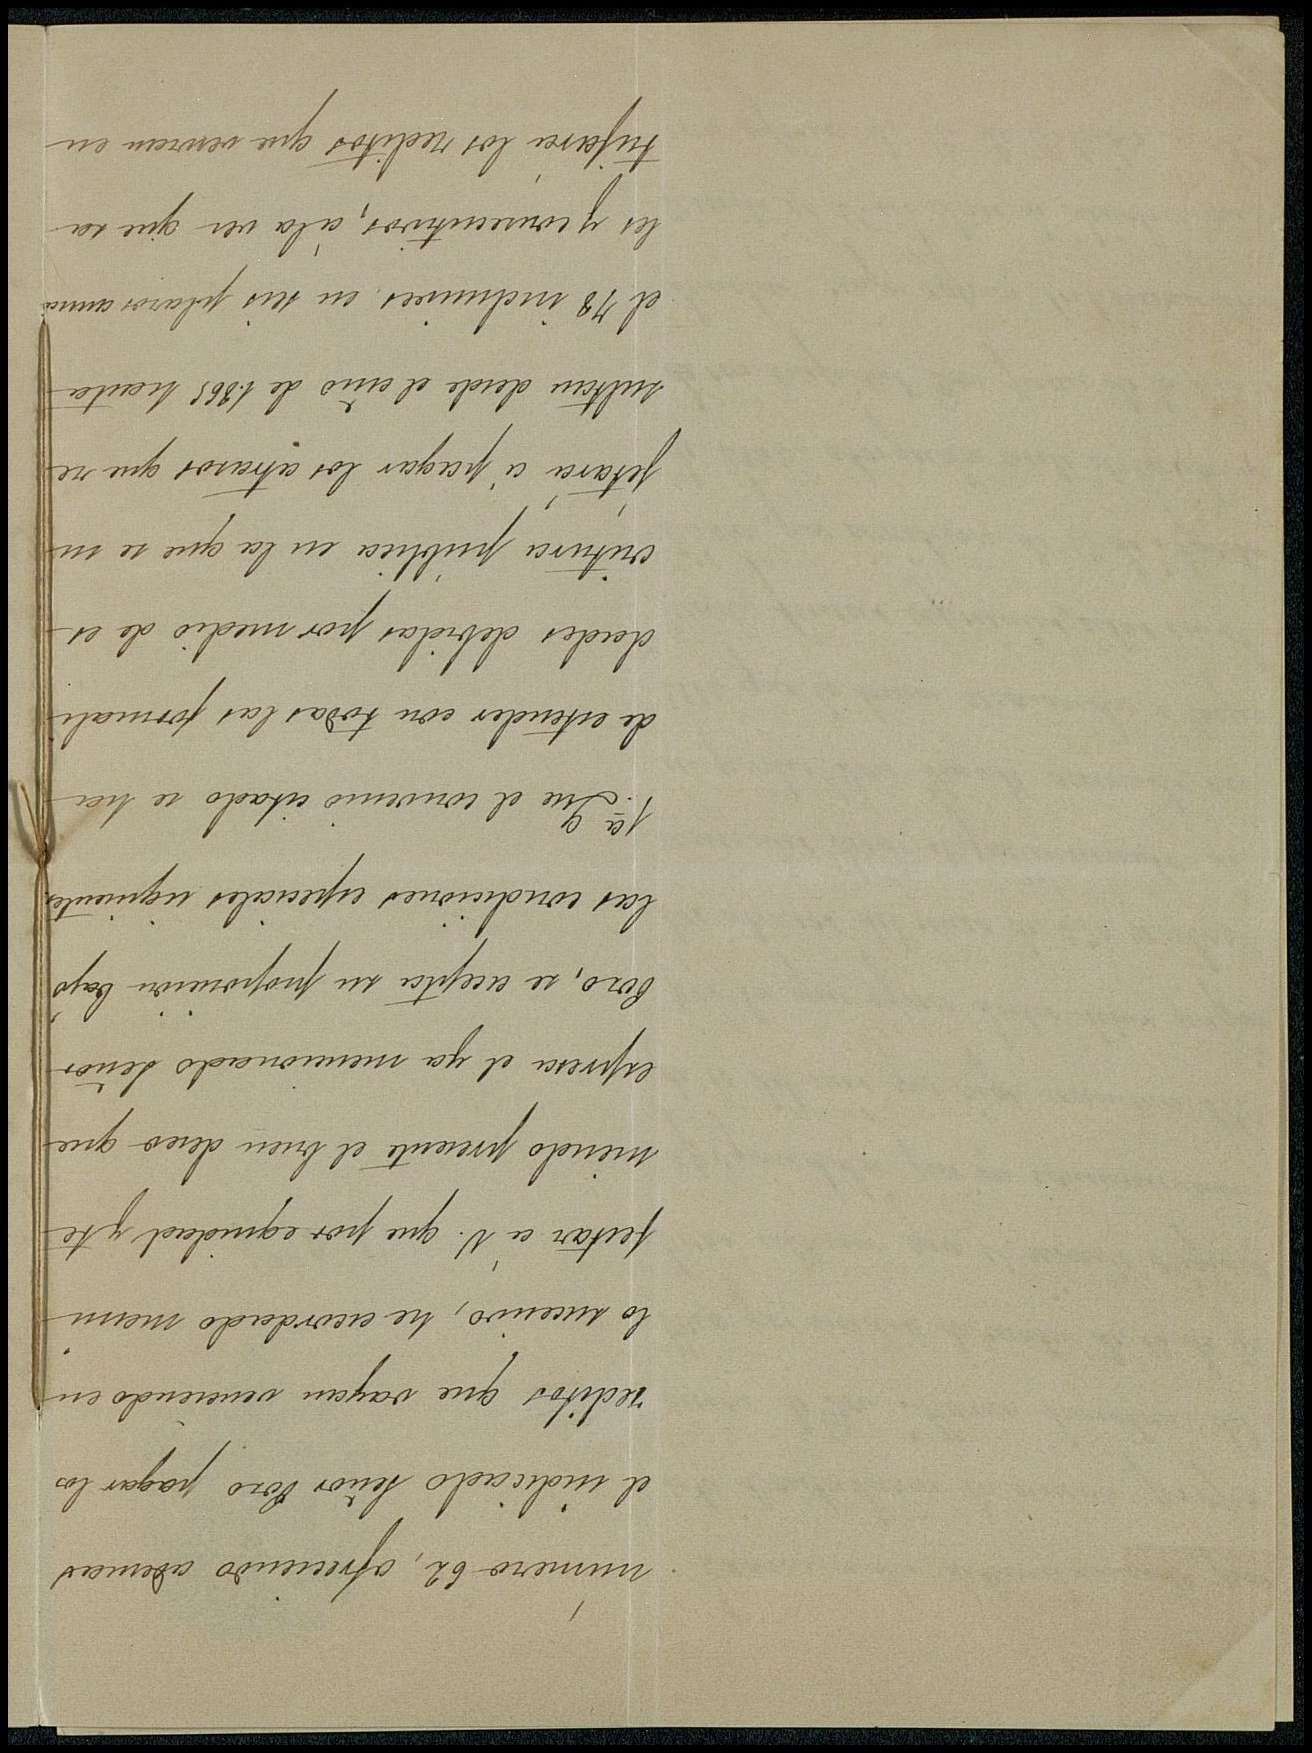 número 62, ofreciendo ademas
el indicado Señor Pozo pagar los
reditos que vayan venciendo en
lo sucesivo, he acordado mani
festar á V. que por equidad y te
niendo presente el buen deseo que
espresa el ya mencionado Señor
Pozo, se acepta su proposicion bajo
las condiciones especiales siguientes
1.ª Que el convenio citado se ha
de estender con todas las formali
dades debidas por medio de es
critura pública en la que se su
jetará á pagar los atrasos que re
sultan desde el año de 1.865 hasta
el 78 inclusives en seis plazos anua
les y consecutivos, á la vez que sa
tisfará los reditos que venzan en